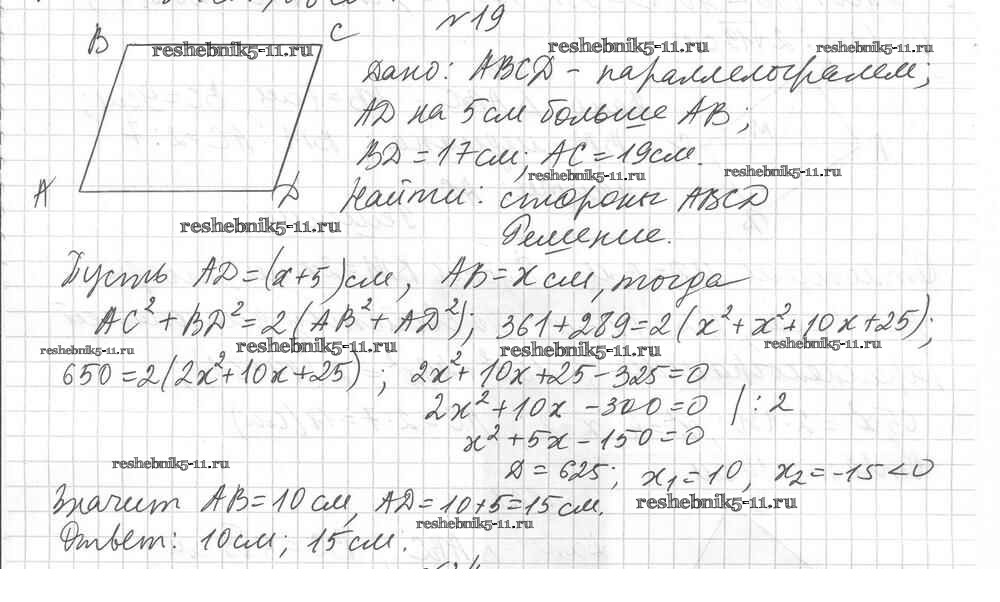 №19
B C
Дано: ABCD - параллелограмм;
AD на 5 см больше AB;
BD = 17 см; AC = 19 см.
A D Найти: стороны ABCD
Решение.
Пусть AD = (x+5) см, AB = x см, тогда
AC² + BD² = 2(AB² + AD²); 361 + 289 = 2(x² + x² + 10x + 25);
650 = 2(2x² + 10x + 25); 2x² + 10x + 25 - 325 = 0
2x² + 10x - 300 = 0 | : 2
x² + 5x - 150 = 0
D = 625; x₁ = 10, x₂ = -15 < 0
Значит AB = 10 см, AD = 10 + 5 = 15 см.
Ответ: 10 см; 15 см.
reshebnik5-11.ru
reshebnik5-11.ru
reshebnik5-11.ru
reshebnik5-11.ru
reshebnik5-11.ru
reshebnik5-11.ru
reshebnik5-11.ru
reshebnik5-11.ru
reshebnik5-11.ru
reshebnik5-11.ru
reshebnik5-11.ru
reshebnik5-11.ru
reshebnik5-11.ru